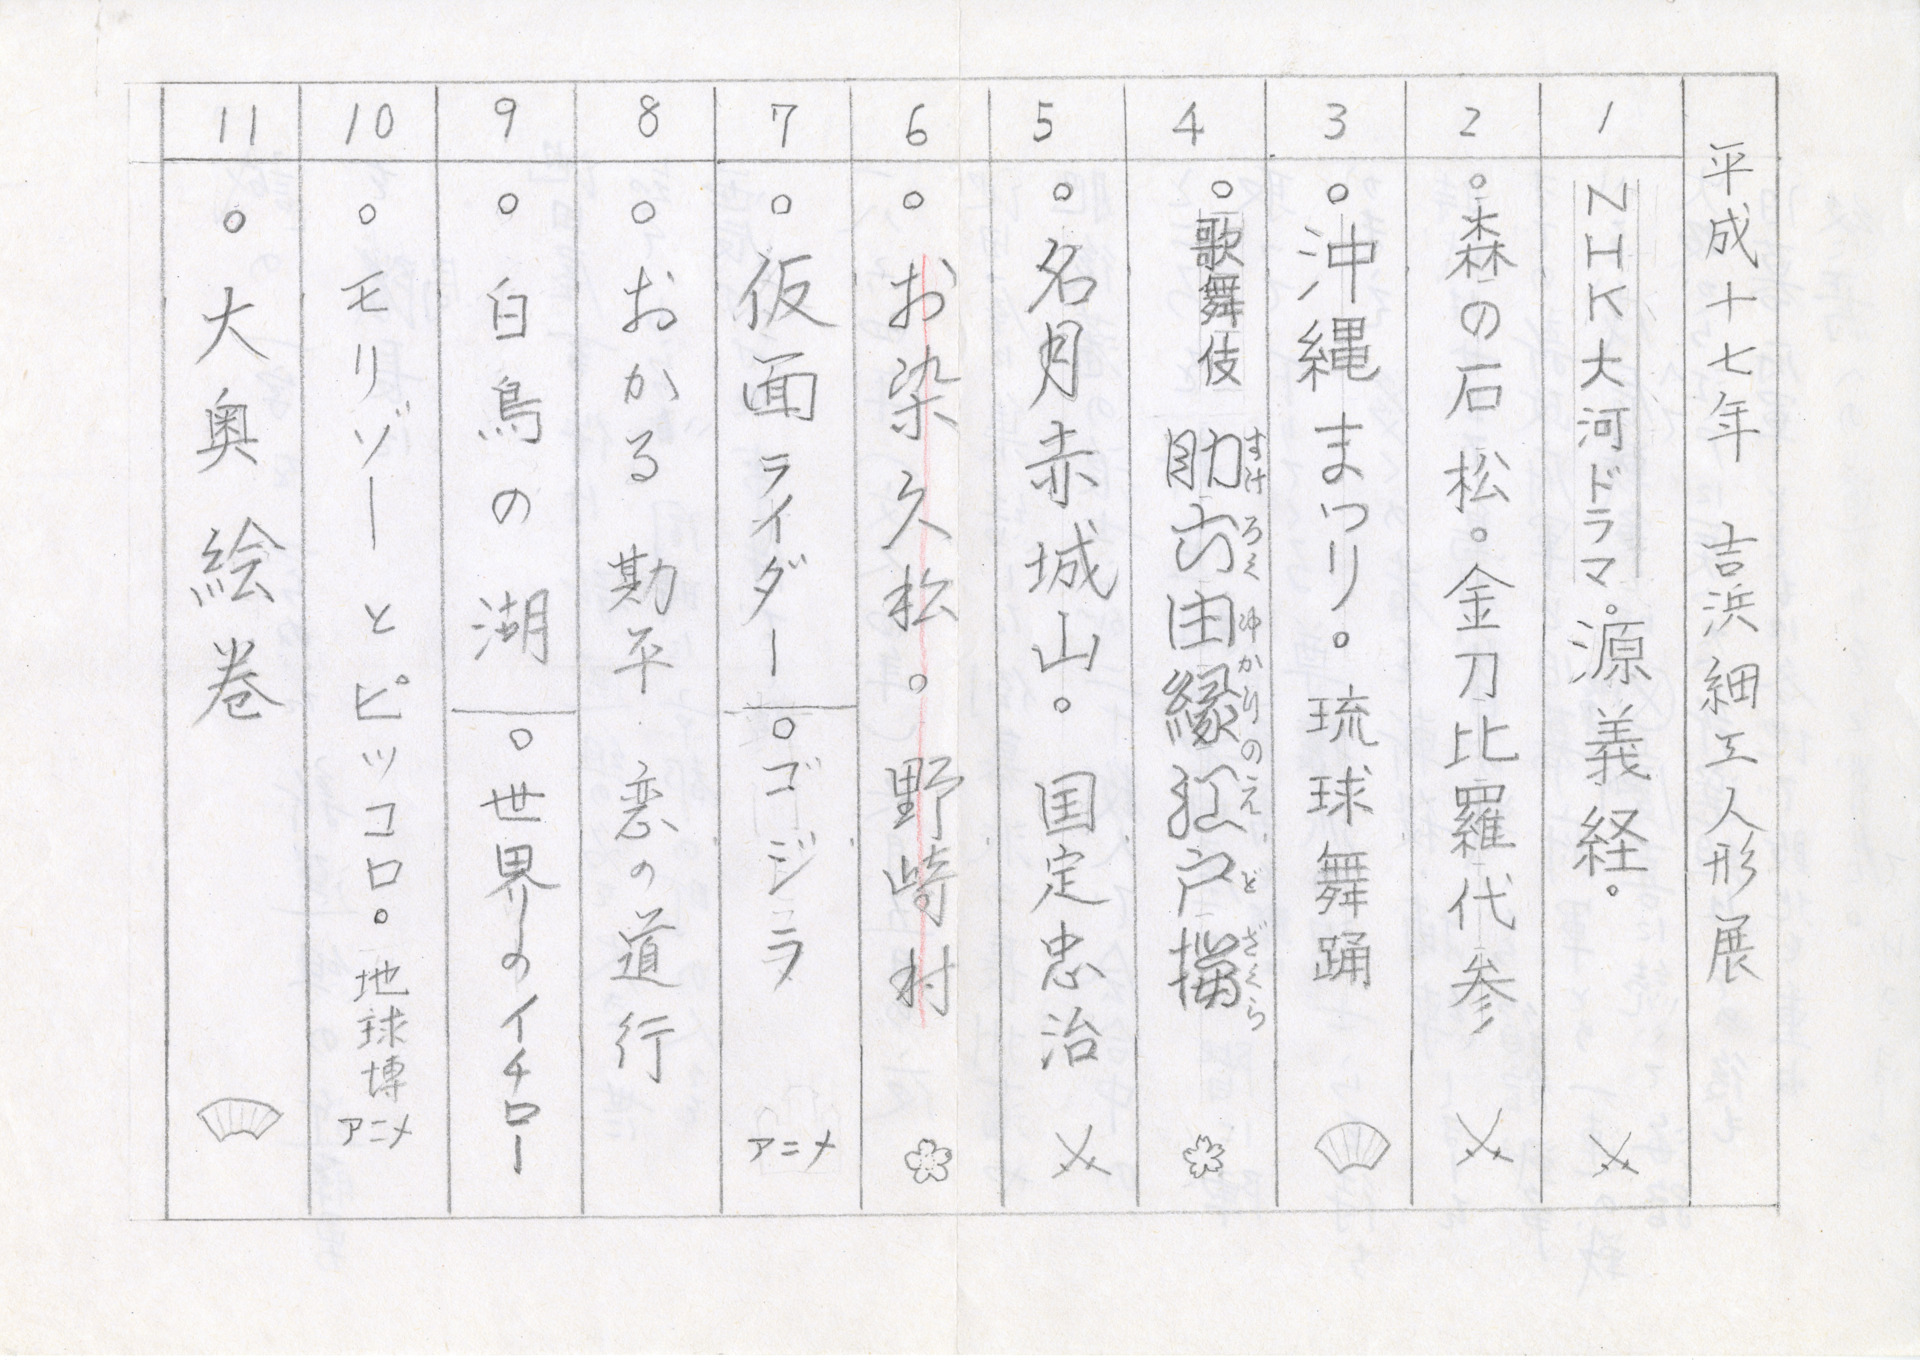 平成十七年 吉浜細工人形展
1
NHK大河ドラマ。源義経。
2
。森の石松。金刀比羅代参
3
。沖縄まつり。琉球舞踊
4
。歌舞伎 助六由縁江戸桜
すけろくゆかりのえどざくら
5
。名月赤城山。国定忠治
6
。お染久松。野崎村
7
。仮面ライダー
。ゴジラ
アニメ
8
。おかる勘平 恋の道行
9
。白鳥の湖
。世界のイチロー
10
。モリゾーとピッコロ。地球博
アニメ
11
。大奥絵巻